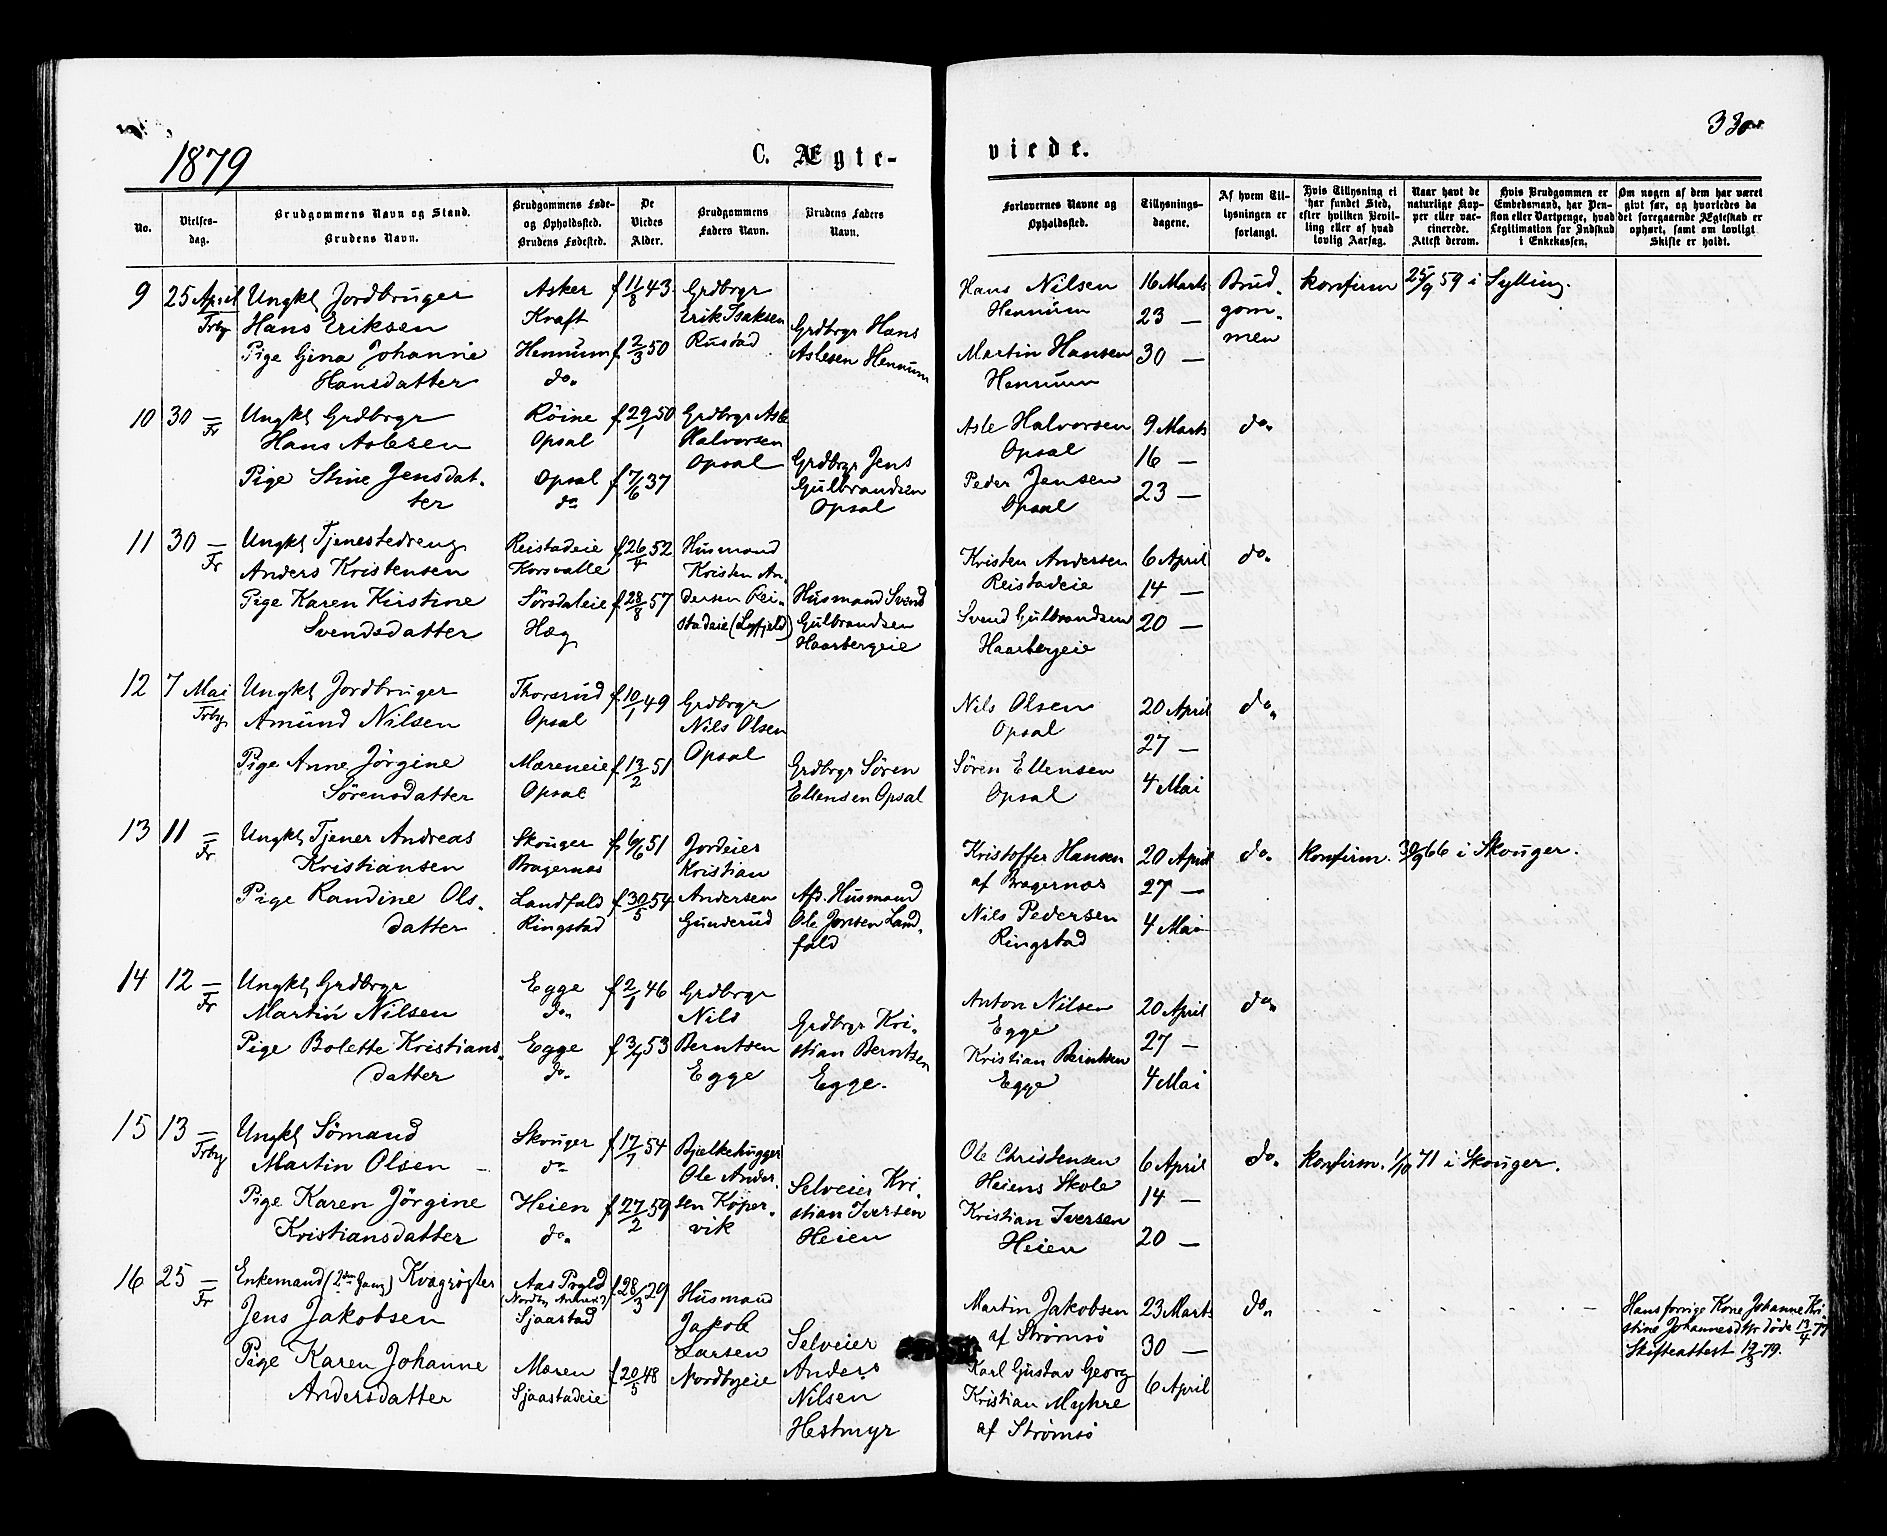 1879
C. Ægte-
viede.
No.
Vielses-
dag.
Brudgommens Navn og Stand.
Brudens Navn.
Brudgommens Føde-
og Opholdssted.
Brudens Fødested.
De
Viedes
Alder.
Brudgommens
Faders Navn.
Brudens Faders
Navn.
Forlovernes Navne og
Opholdssted.
Tillysnings-
dagene.
Af hvem Til-
lysningen er
forlangt.
Hvis Tillysning ei
har fundet Sted,
efter hvilken Bevil-
ling eller af hvad
lovlig Aarsag.
Naar havt de
naturlige Kop-
per eller vac-
cinerede.
Attest derom.
Hvis Brudgommen er
Embedsmand, har Pen-
sion eller Vartpenge, hvad
Legitimation for Indskud
i Enkekassen.
Om nogen af dem har været
gift før, og hvorledes da
det foregaaende Ægteskab er
ophørt, samt om lovligt
Skifte er holdt.
9
25 April
Trby
Ungkl Jordbruger
Hans Eriksen
Pige Gina Johanne
Hansdatter
Asker
Kraft
Hennum
do.
f. 11/8 43
f. 2/3 50
Grdbrgr
Erik Isaksen
Rustad
Grdbrgr Hans
Aslesen Hennum
Hans Nilsen
Hennum
Martin Hansen
Hennum
16 Marts
23 —
30 —
Brud-
gom-
men
konfirm 25/9 59 i Sylling.
10
30 —
Fr
Ungkl Grdbrgr
Hans Aslesen
Pige Stine Jensdat-
ter
Röine
Opsal
Opsal
do
f. 29/1 50
f. 7/6 37
Grdbrgr Asle
Halvorsen
Opsal
Grdbrgr Jens
Gulbrandsen
Opsal
Asle Halvorsen
Opsal
Peder Jensen
Opsal
9 Marts
16 —
23 —
do.
11
30 —
Fr
Ungkl Tjenestedreng
Anders Kristensen
Pige Karen Kirstine
Svendsdatter
Reistadeie
Korsvalle
Sörsdaleie
Hæg
f. 26/4 52
f. 28/8 57
Husmand
Kristen An-
dersen Rei-
stadeie (Lyfjeld)
Husmand Svend
Gulbrandsen
Haarbergeie
Kristen Andersen
Reistadeie
Svend Gulbrandsen
Haarbergeie
6 April
14 —
20 —
do.
12
7 Mai
Trby
Ungkl Jordbruger
Amund Nilsen
Pige Anne Jörgine
Sörensdatter
Thorsrud
Opsal
Mæreneie
Opsal
f. 10/1 49
f. 13/2 51
Grdbrgr
Nils Olsen
Opsal
Grdbrgr Sören
Ellensen Opsal
Nils Olsen
Opsal
Sören Ellensen
Opsal
20 April
27 —
4 Mai
do.
13
11 —
Fr
Ungkl Tjener Andreas
Kristiansen
Pige Randine Ols-
datter
Skouger
Bragernæs
Landfald
Ringstad
f. 6/6 51
f. 30/5 54
Jordeier
Kristian
Andersen
Gunderud
Afd. Husmand
Ole Jonsen Land-
fald
Kristoffer Hansen
af Bragernæs
Nils Pedersen
Ringstad
20 April
27 —
4 Mai
do.
konfirm. 30/9 66 i Skouger.
14
12 —
Fr
Ungkl Grdbrgr
Martin Nilsen
Pige Bolette Kristians-
datter
Egge
do.
Egge
do.
f. 2/1 46
f. 3/4 53
Grdbrgr
Nils
Berntsen
Egge
Grdbrgr Kri-
stian Berntsen
Egge.
Anton Nilsen
Egge
Kristian Berntsen
Egge
20 April
27 —
4 Mai
do.
15
13 —
Trby
Ungkl Sömand
Martin Olsen —
Pige Karen Jörgine
Kristiansdatter
Skouger
do
Heien
do.
f. 17/1 54
f. 27/2 59
Bjelkehugger
Ole Ander-
sen Koper-
vik
Selveier Kri-
stian Iversen
Heien
Ole Christensen
Heiens Skole
Kristian Iversen
Heien
6 April
14 —
20 —
do.
konfirm. 1/10 71 i Skouger.
16
25 —
Fr
Enkemand (2den Gang) Kvægrögter
Jens Jakobsen
Pige Karen Johanne
Andersdatter
Aas Prgld
Sjaastad
Mæren
Sjaastadeie
f. 28/3 29
f. 20/5 48
Husmand
Jakob
Larsen
Nordbyeie
Selveier
Anders
Nilsen
Hestmyr
Martin Jakobsen
af Strömsö
Karl Gustav Georg
Kristian Myhre
af Strömsö
23 Marts
30 —
6 April
do.
Hans forrige Kone Johanne Kri-
stine Johannesdtr döde
Skifteattest